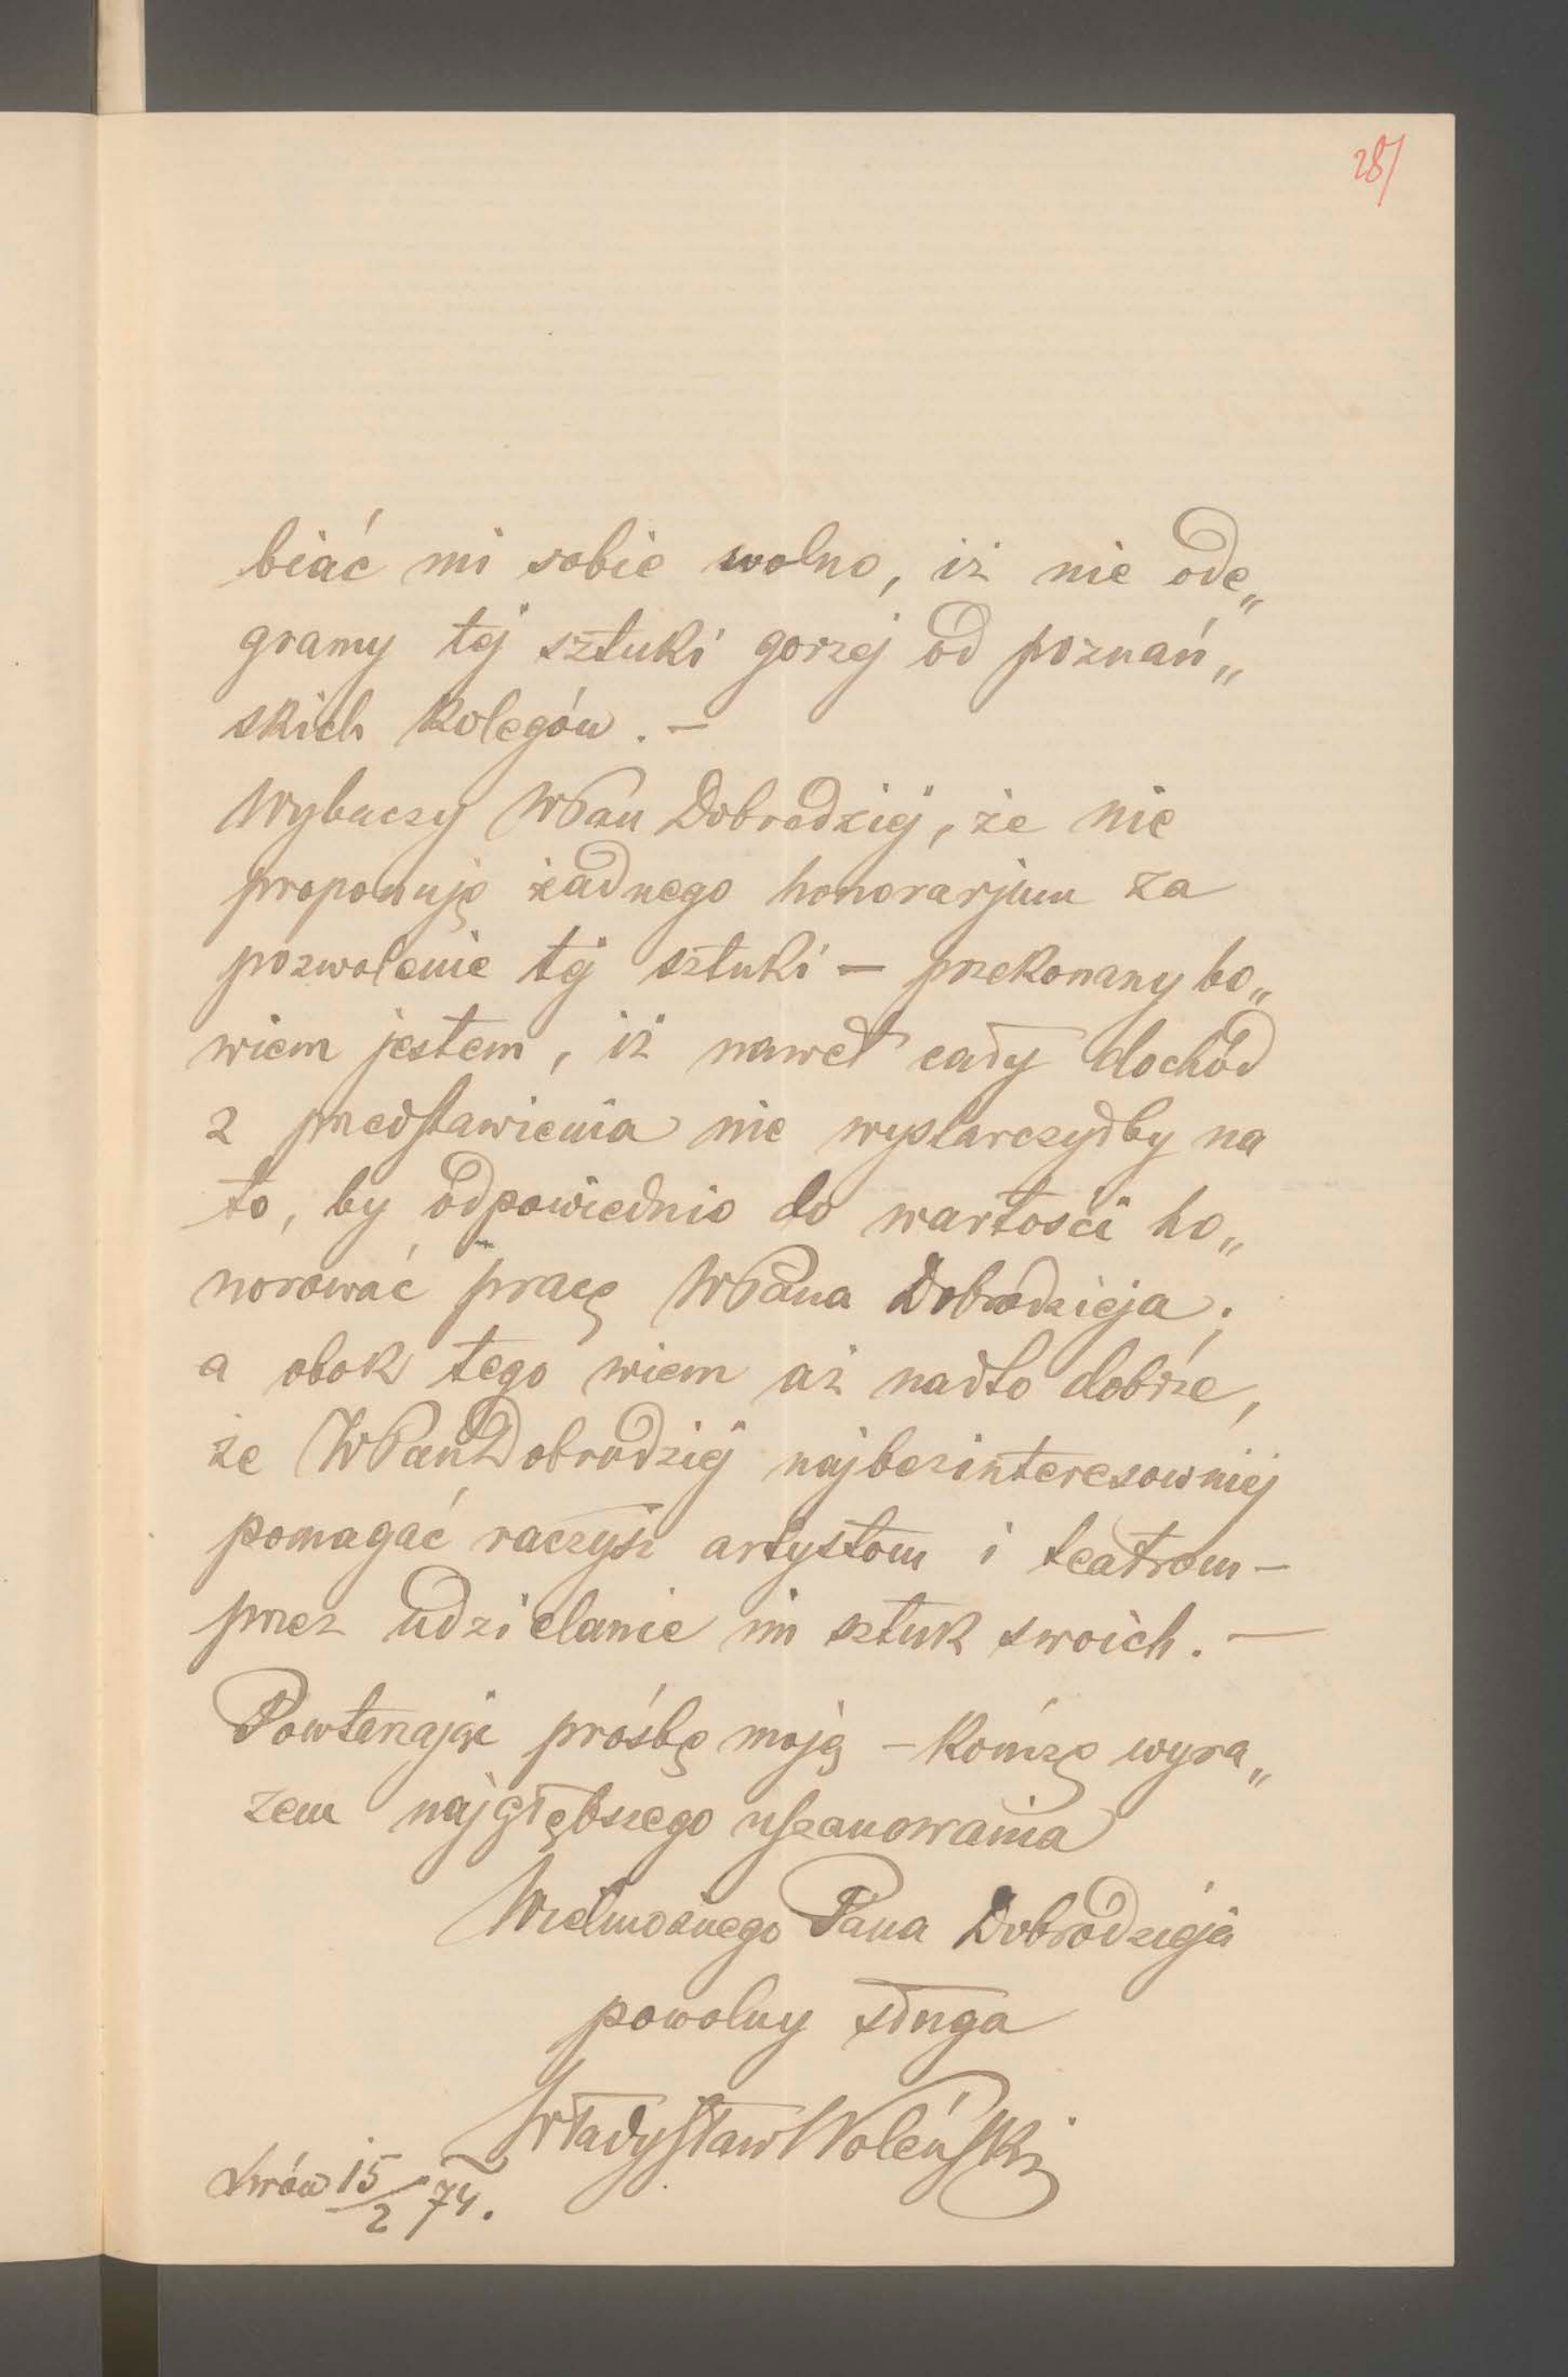 287
biać mi sobie wolno, iż nie ode„
gramy tej sztuki gorzej od poznań„
skich kolegów. —
Wybaczy WPan Dobrodziej, że nie
proponuję żadnego honorarjum za
pozwolenie tej sztuki — przekonany bo„
wiem jestem, iż nawet cały dochód
z przedstawienia nie wystarczyłby na
to, by odpowiednio do wartości ho„
norować pracę WPana Dobrodzieja;
a obok tego wiem aż nadto dobrze,
że WPan Dobrodziej najbezinteresowniej
pomagać raczysz artystom i teatrom —
przez udzielanie im sztuk swoich. —
Powtarzając prośbę moją — kończę wyra„
zem najgłębszego uszanowania
Wielmożnego Pana Dobrodzieja
powolny sługa
Władysław Woleński
Lwów 15/2 74.